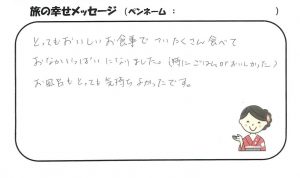 旅の幸せメッセージ（ペンネーム：　　　　　　　　）
とってもおいしいお食事で ついたくさん食べて
おなかいっぱいになりました。（特にごはんがおいしかった）
お風呂もとっても気持ちよかったです。